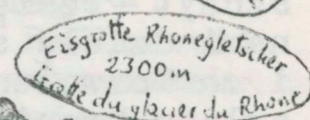 Eisgrotte Rhonegletscher
2300m
Grotte du glacier du Rhone